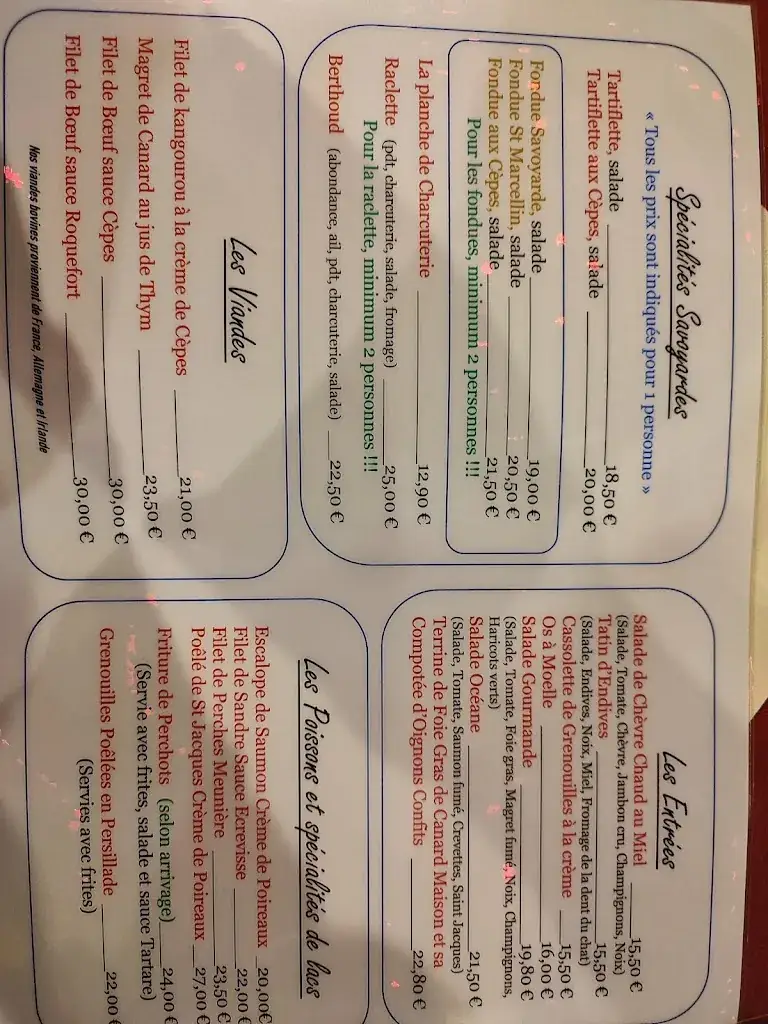 Spécialités Savoyardes
« Tous les prix sont indiqués pour 1 personne »
Tartiflette, salade 18,50 €
Tartiflette aux Cèpes, salade 20,00 €
Fondue Savoyarde, salade 19,00 €
Fondue St Marcellin, salade 20,50 €
Fondue aux Cèpes, salade 21,50 €
Pour les fondues, minimum 2 personnes !!!
La planche de Charcuterie 12,90 €
Raclette (pdt, charcuterie, salade, fromage) 25,00 €
Pour la raclette, minimum 2 personnes !!!
Berthoud (abondance, ail, pdt, charcuterie, salade) 22,50 €
Les Viandes
Filet de kangourou à la crème de Cèpes 21,00 €
Magret de Canard au jus de Thym 23,50 €
Filet de Bœuf sauce Cèpes 30,00 €
Filet de Bœuf sauce Roquefort 30,00 €
Nos viandes bovines proviennent de France, Allemagne et Irlande
Les Entrées
Salade de Chèvre Chaud au Miel 15,50 €
(Salade, Tomate, Chèvre, Jambon cru, Champignons, Noix)
Tatin d'Endives 15,50 €
(Salade, Endives, Noix, Miel, Fromage de la dent du chat)
Cassolette de Grenouilles à la crème 15,50 €
Os à Moelle 16,00 €
Salade Gourmande 19,80 €
(Salade, Tomate, Foie gras, Magret fumé, Noix, Champignons,
Haricots verts)
Salade Océane 21,50 €
(Salade, Tomate, Saumon fumé, Crevettes, Saint Jacques)
Terrine de Foie Gras de Canard Maison et sa
Compotée d'Oignons Confits 22,80 €
Les Poissons et spécialités de lacs
Escalope de Saumon Crème de Poireaux 20,00€
Filet de Sandre Sauce Ecrevisse 22,00 €
Filet de Perches Meunière 23,50 €
Poêlé de St Jacques Crème de Poireaux 27,00 €
Friture de Perchots (selon arrivage) 24,00 €
(Servie avec frites, salade et sauce Tartare)
Grenouilles Poêlées en Persillade 22,00 €
(Servies avec frites)